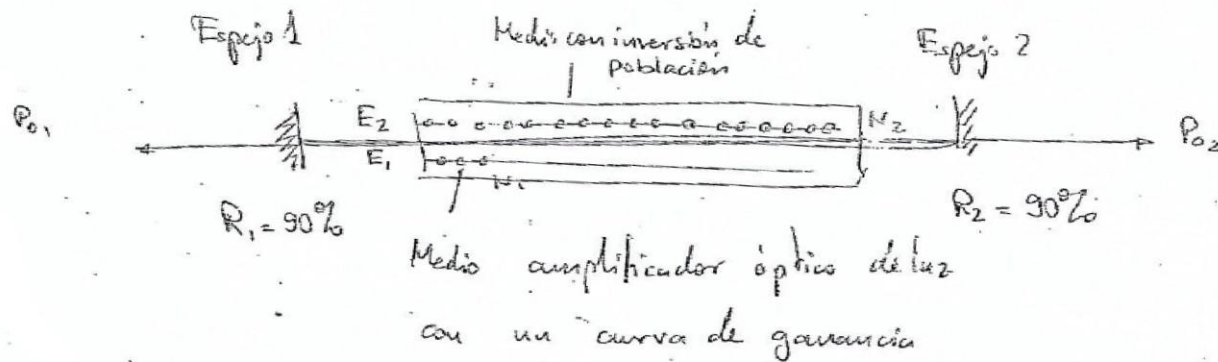 Espejo 1
Medio con inversión de
población
Espejo 2
P₀₁
E₂
N₂
P₀₂
E₁
N₁
R₁ = 90%
R₂ = 90%
Medio amplificador óptico de luz
con un curva de ganancia